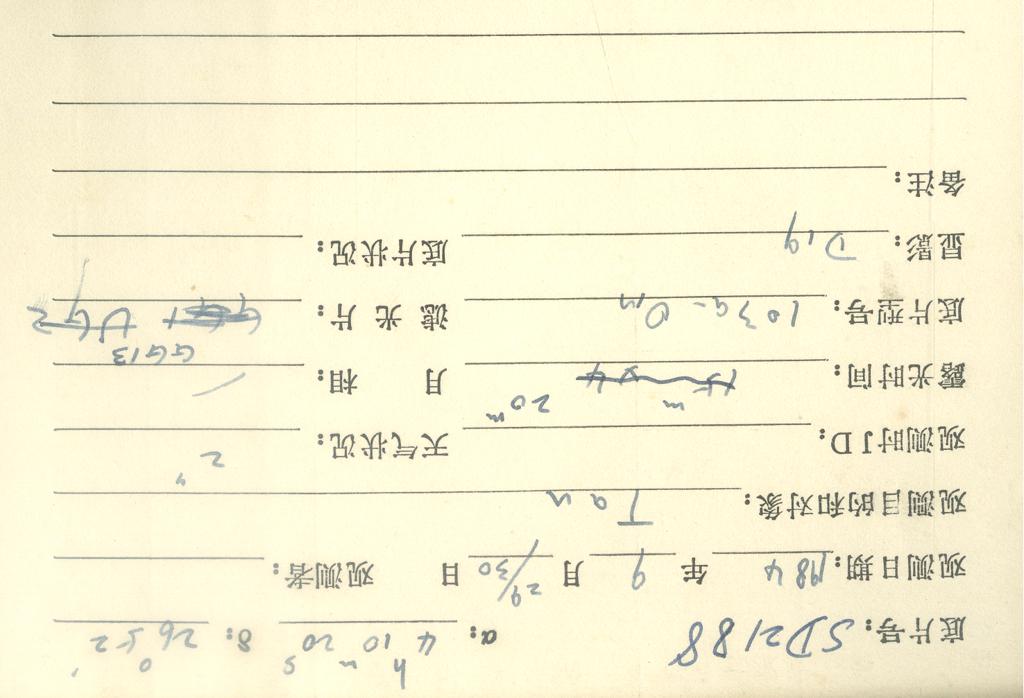 底片号: SD2188 α: 4h 10m 20s δ: 26° 52′
观测日期: 1984 年 9 月 29/30 日 观测者:
观测目的和对象: Tau
观测时JD: 天气状况: 2″
露光时间: 20m 月相:
底片型号: 103a-O, N 滤光片: GG13 UG2
显影: D19 底片状况:
备注: